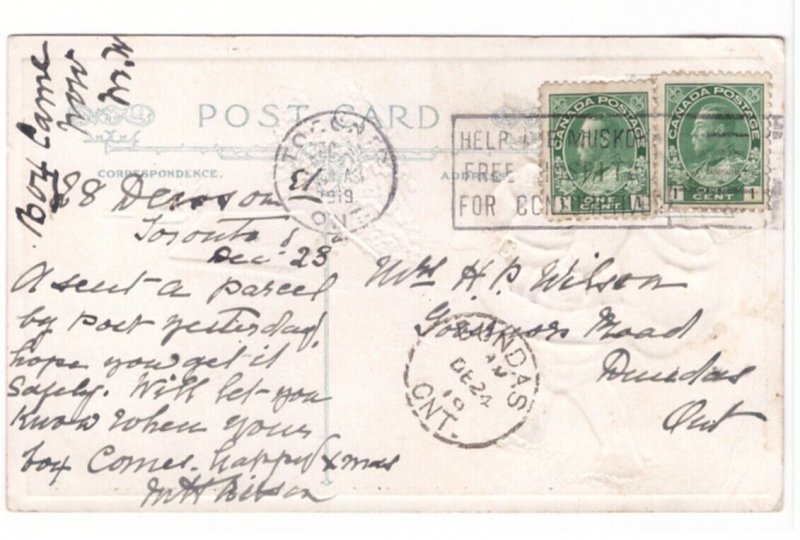 Box Came
now
POST CARD
CORRESPONDENCE.
ADDRESS
TORONTO
1919
ONT
HELP THE MUSKO
FREE
FOR CON
CANADA POSTAGE
ONE
CENT
CANADA POSTAGE
1 ONE 1
CENT
88
Toronto
Dec 23
sent a parcel
by post yesterday
hope you get it
safely. Will let you
know when your
box comes. Happy Xmas
Mrs H. P. Wilson
Governors Road
Dundas
Ont
DUNDAS
AM
DE 24
19
ONT.